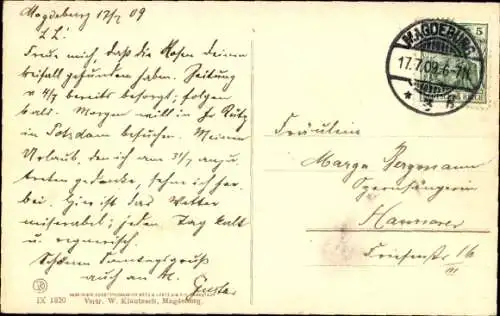 Magdeburg 17/7 09
L. L!
Freue mich, daß die Rosen deinen
beifall gefunden haben. Zeitung
v 4/7 bereits besorgt; folgen
bald. Morgen will ich Fr
in Potsdam besuchen. Meinen
Urlaub, den ich am 31/7 anzu
treten gedenke, sehne ich her
bei. Hier ist das Wetter
miserabel; jeden Tag kalt
u regnerisch.
Schönen Sonntagsgruß
auch an M.
Gustav
IX 1820
Vertr. W. Klautzsch, Magdeburg.
MAGDEBURG
17.7.09.6-7N.
5
Fräulein
Marga Bergmann
Opernsängerin
Hannover
16
III